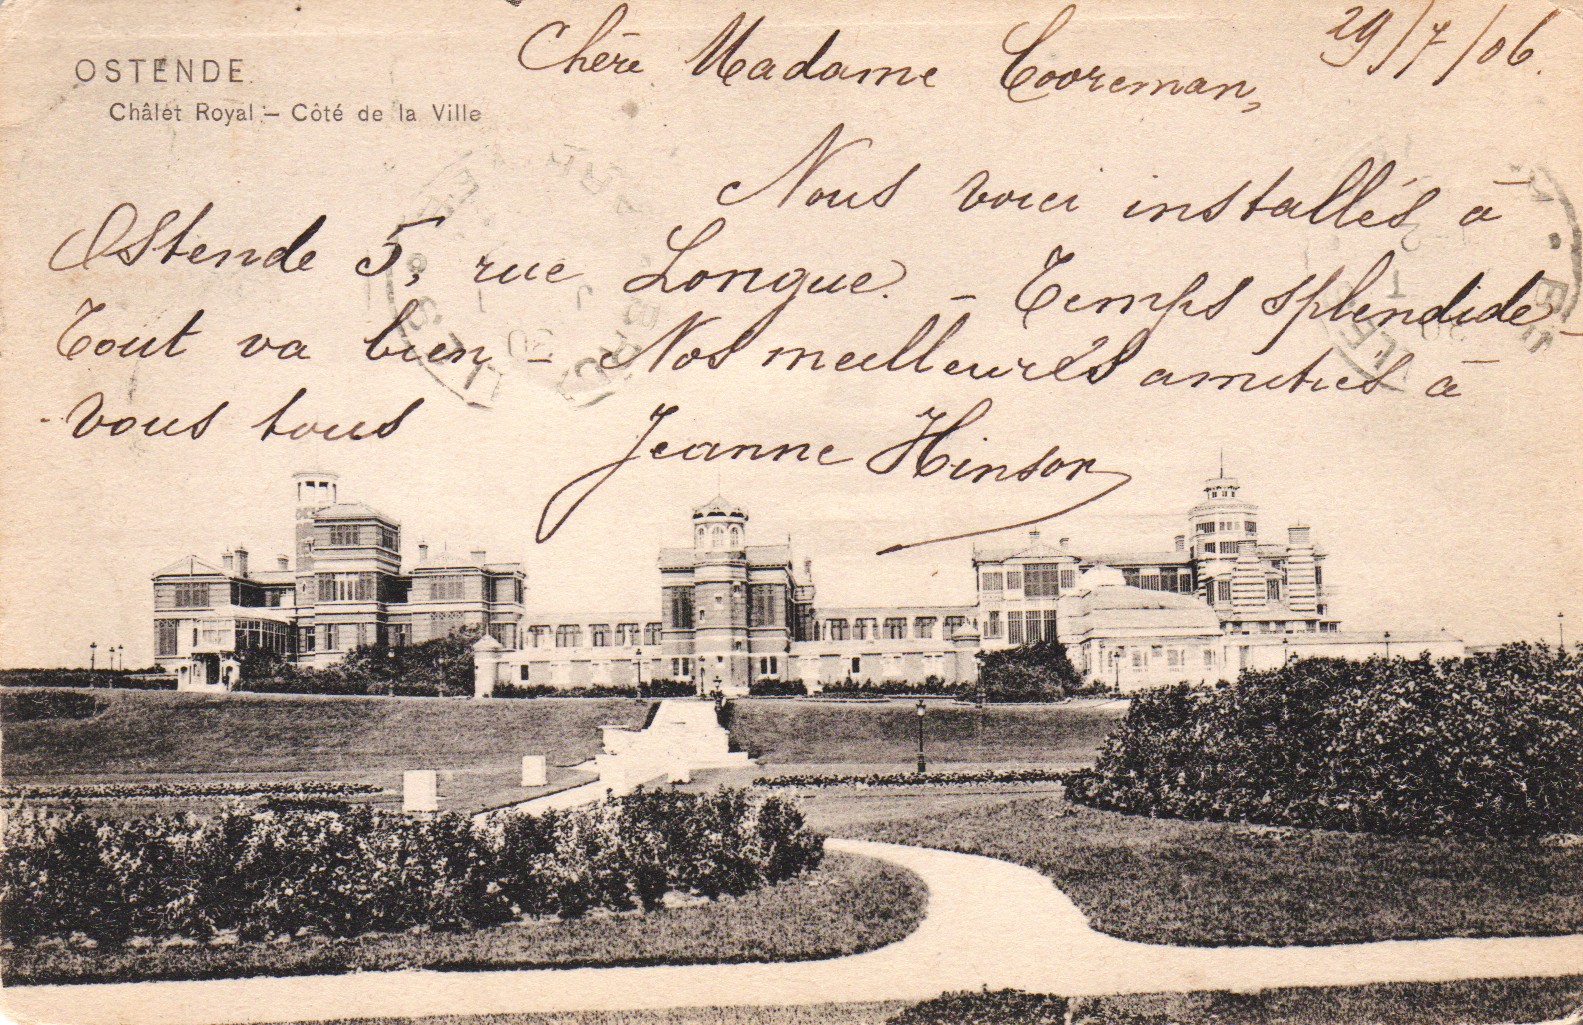 OSTENDE
Châlet Royal – Côté de la Ville
29/7/06.
Chère Madame Cooreman,
Nous voici installés à
Ostende 5, rue Longue. – Temps splendide –
Tout va bien – Nos meilleures amitiés à
vous tous
Jeanne Hinson